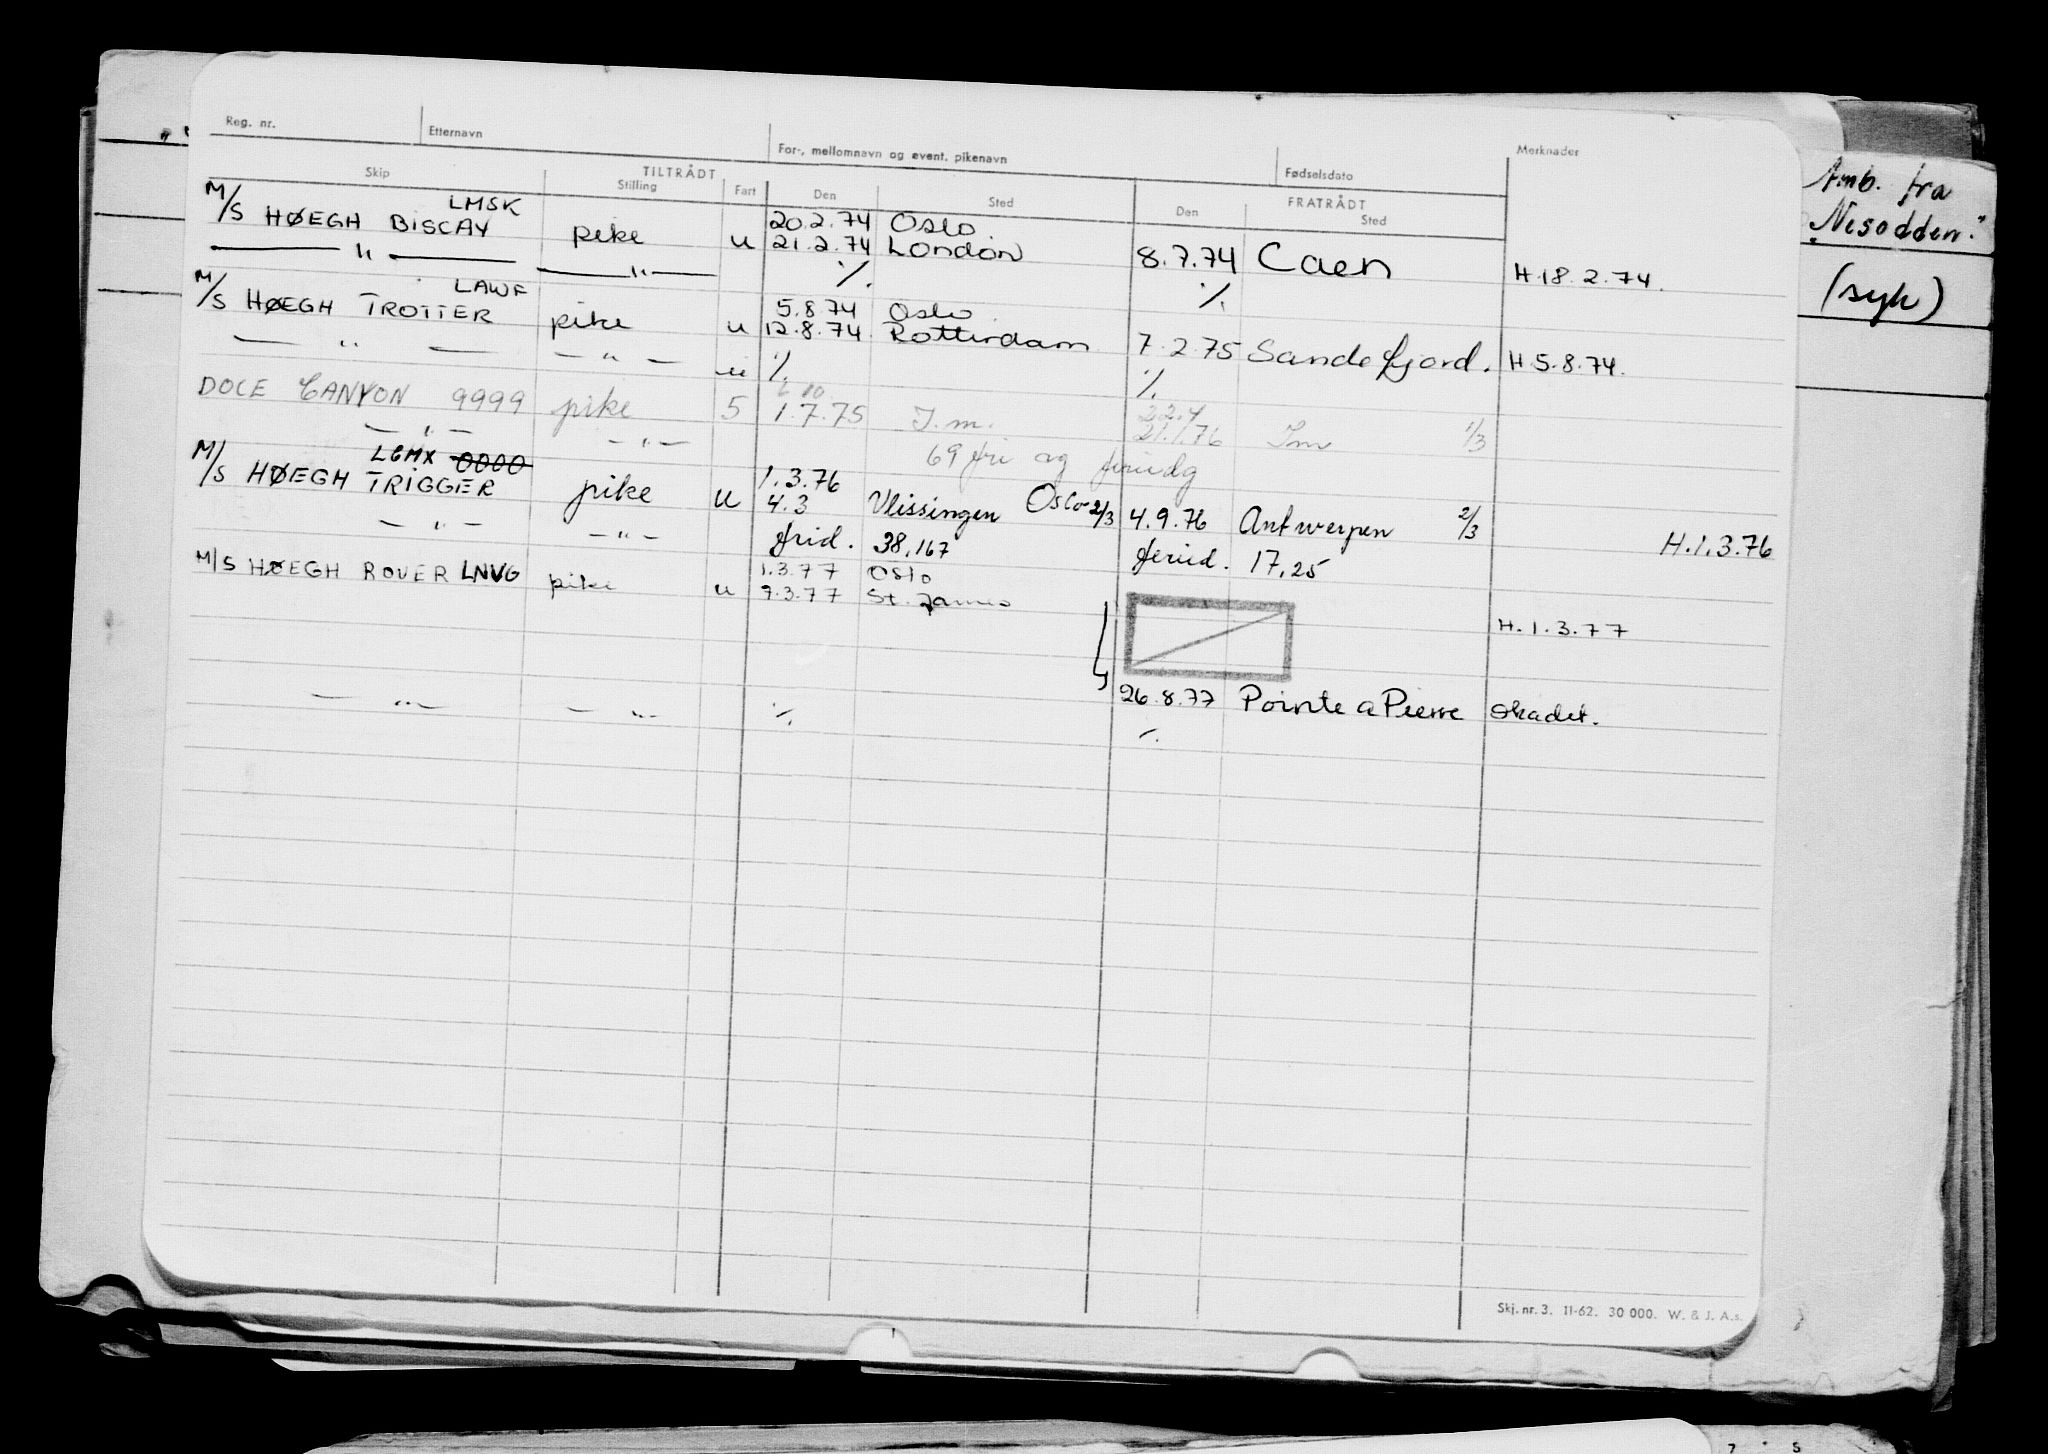 Reg. nr. Etternavn For-, mellomnavn og event. pikenavn Fødselsdato Merknader
Skip TILTRÅDT Stilling Fart Den Sted FRATRÅDT Den Sted
LMSK 20.2.74 Oslo
M/S HØEGH BISCAY pike u 21.2.74 London 8.7.74 Caen H.18.2.74.
— " — — " — ·/. ·/.
LAWF 5.8.74 Oslo
M/S HØEGH TROTTER pike u 12.8.74 Rotterdam 7.2.75 Sandefjord. H.5.8.74.
— " — — " — u ·/. ·/.
DOCE CANYON 9999 pike 5 1.7.75 I.m. 21.1.76 Im 1/3
— " — — " — 69 fri og feriedg
LGMX 0000 1.3.76
M/S HØEGH TRIGGER pike u 4.3 Vlissingen Oslo 2/3 4.9.76 Antwerpen 2/3 H.1.3.76
— " — — " — frid. 38,167 feried. 17,25
1.3.77 Oslo
M/S HØEGH ROVER LNVG pike u 9.3.77 St. James H.1.3.77
26.8.77 Pointe a Pierre skadet.
— " — — " — ·/. ·/.
Skj. nr. 3. 11-62. 30 000. W. & J. A.s.
Amb. fra
"Nesodden"
(syk)
7 5